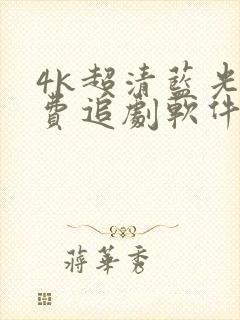 4k超清藍光
費追劇軟件
蔣華秀